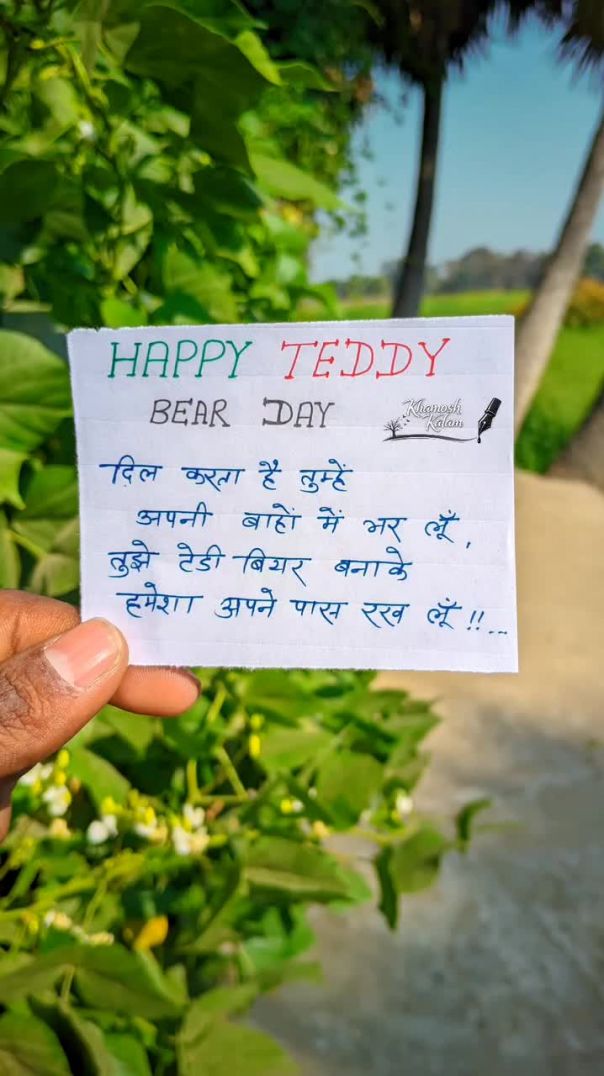 HAPPY TEDDY
BEAR DAY
Khamosh
Kalam
दिल करता है तुम्हें
अपनी बाहों में भर लूँ,
तुझे टेडी बियर बनाके
हमेशा अपने पास रख लूँ !!...